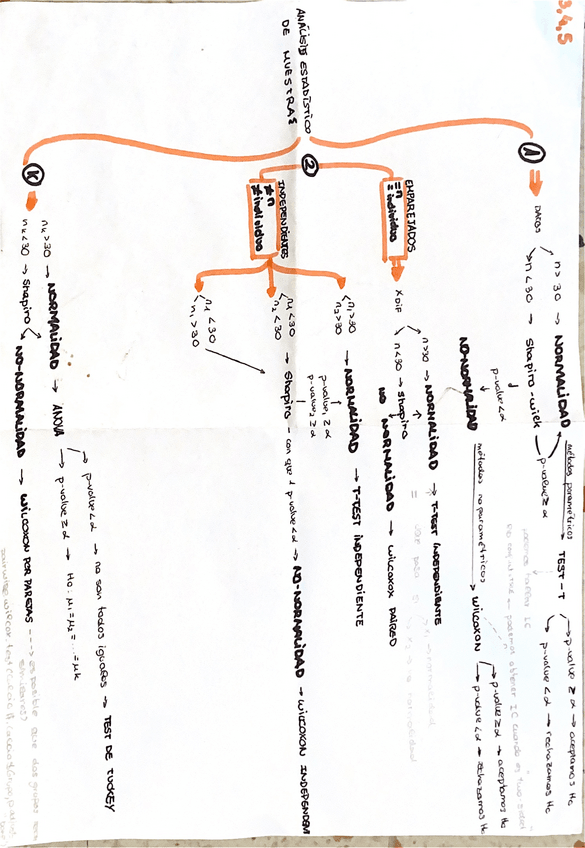 3,4,5
ANÁLISIS ESTADÍSTICO
DE MUESTRAS
1
DATOS
n > 30 → NORMALIDAD
métodos paramétricos
TEST - T
p-value ≥ α → aceptamos H0
p-value < α → rechazamos H0
n < 30 → Shapiro-Wilk
p-value ≥ α
p-value < α
NO-NORMALIDAD
métodos no paramétricos
WILCOXON
p-value ≥ α → aceptamos H0
p-value < α → rechazamos H0
2
EMPAREJADOS
= n
= individuo
X DIF
n > 30 → NORMALIDAD → T-TEST INDEPENDIENTE
n < 30 → Shapiro
NO NORMALIDAD → WILCOXOX PAIRED
INDEPENDIENTES
≠ n
≠ individuo
n1 > 30
n2 > 30
→ NORMALIDAD → T-TEST INDEPENDIENTE
p-value1 ≥ α
p-value2 ≥ α
n1 < 30
n2 < 30
→ Shapiro - con que 1 p-value < α → NO-NORMALIDAD → WILCOXON INDEPENDEN
n1 < 30
n1 > 30
K
nK > 30 → NORMALIDAD → ANOVA
p-value < α → no son todos iguales → TEST DE TUCKEY
p-value ≥ α → H0: μ1 = μ2 = ... = μK
nK < 30 → Shapiro
NO-NORMALIDAD → WILCOXON POR PAREJAS
es posible que dos grupos sean